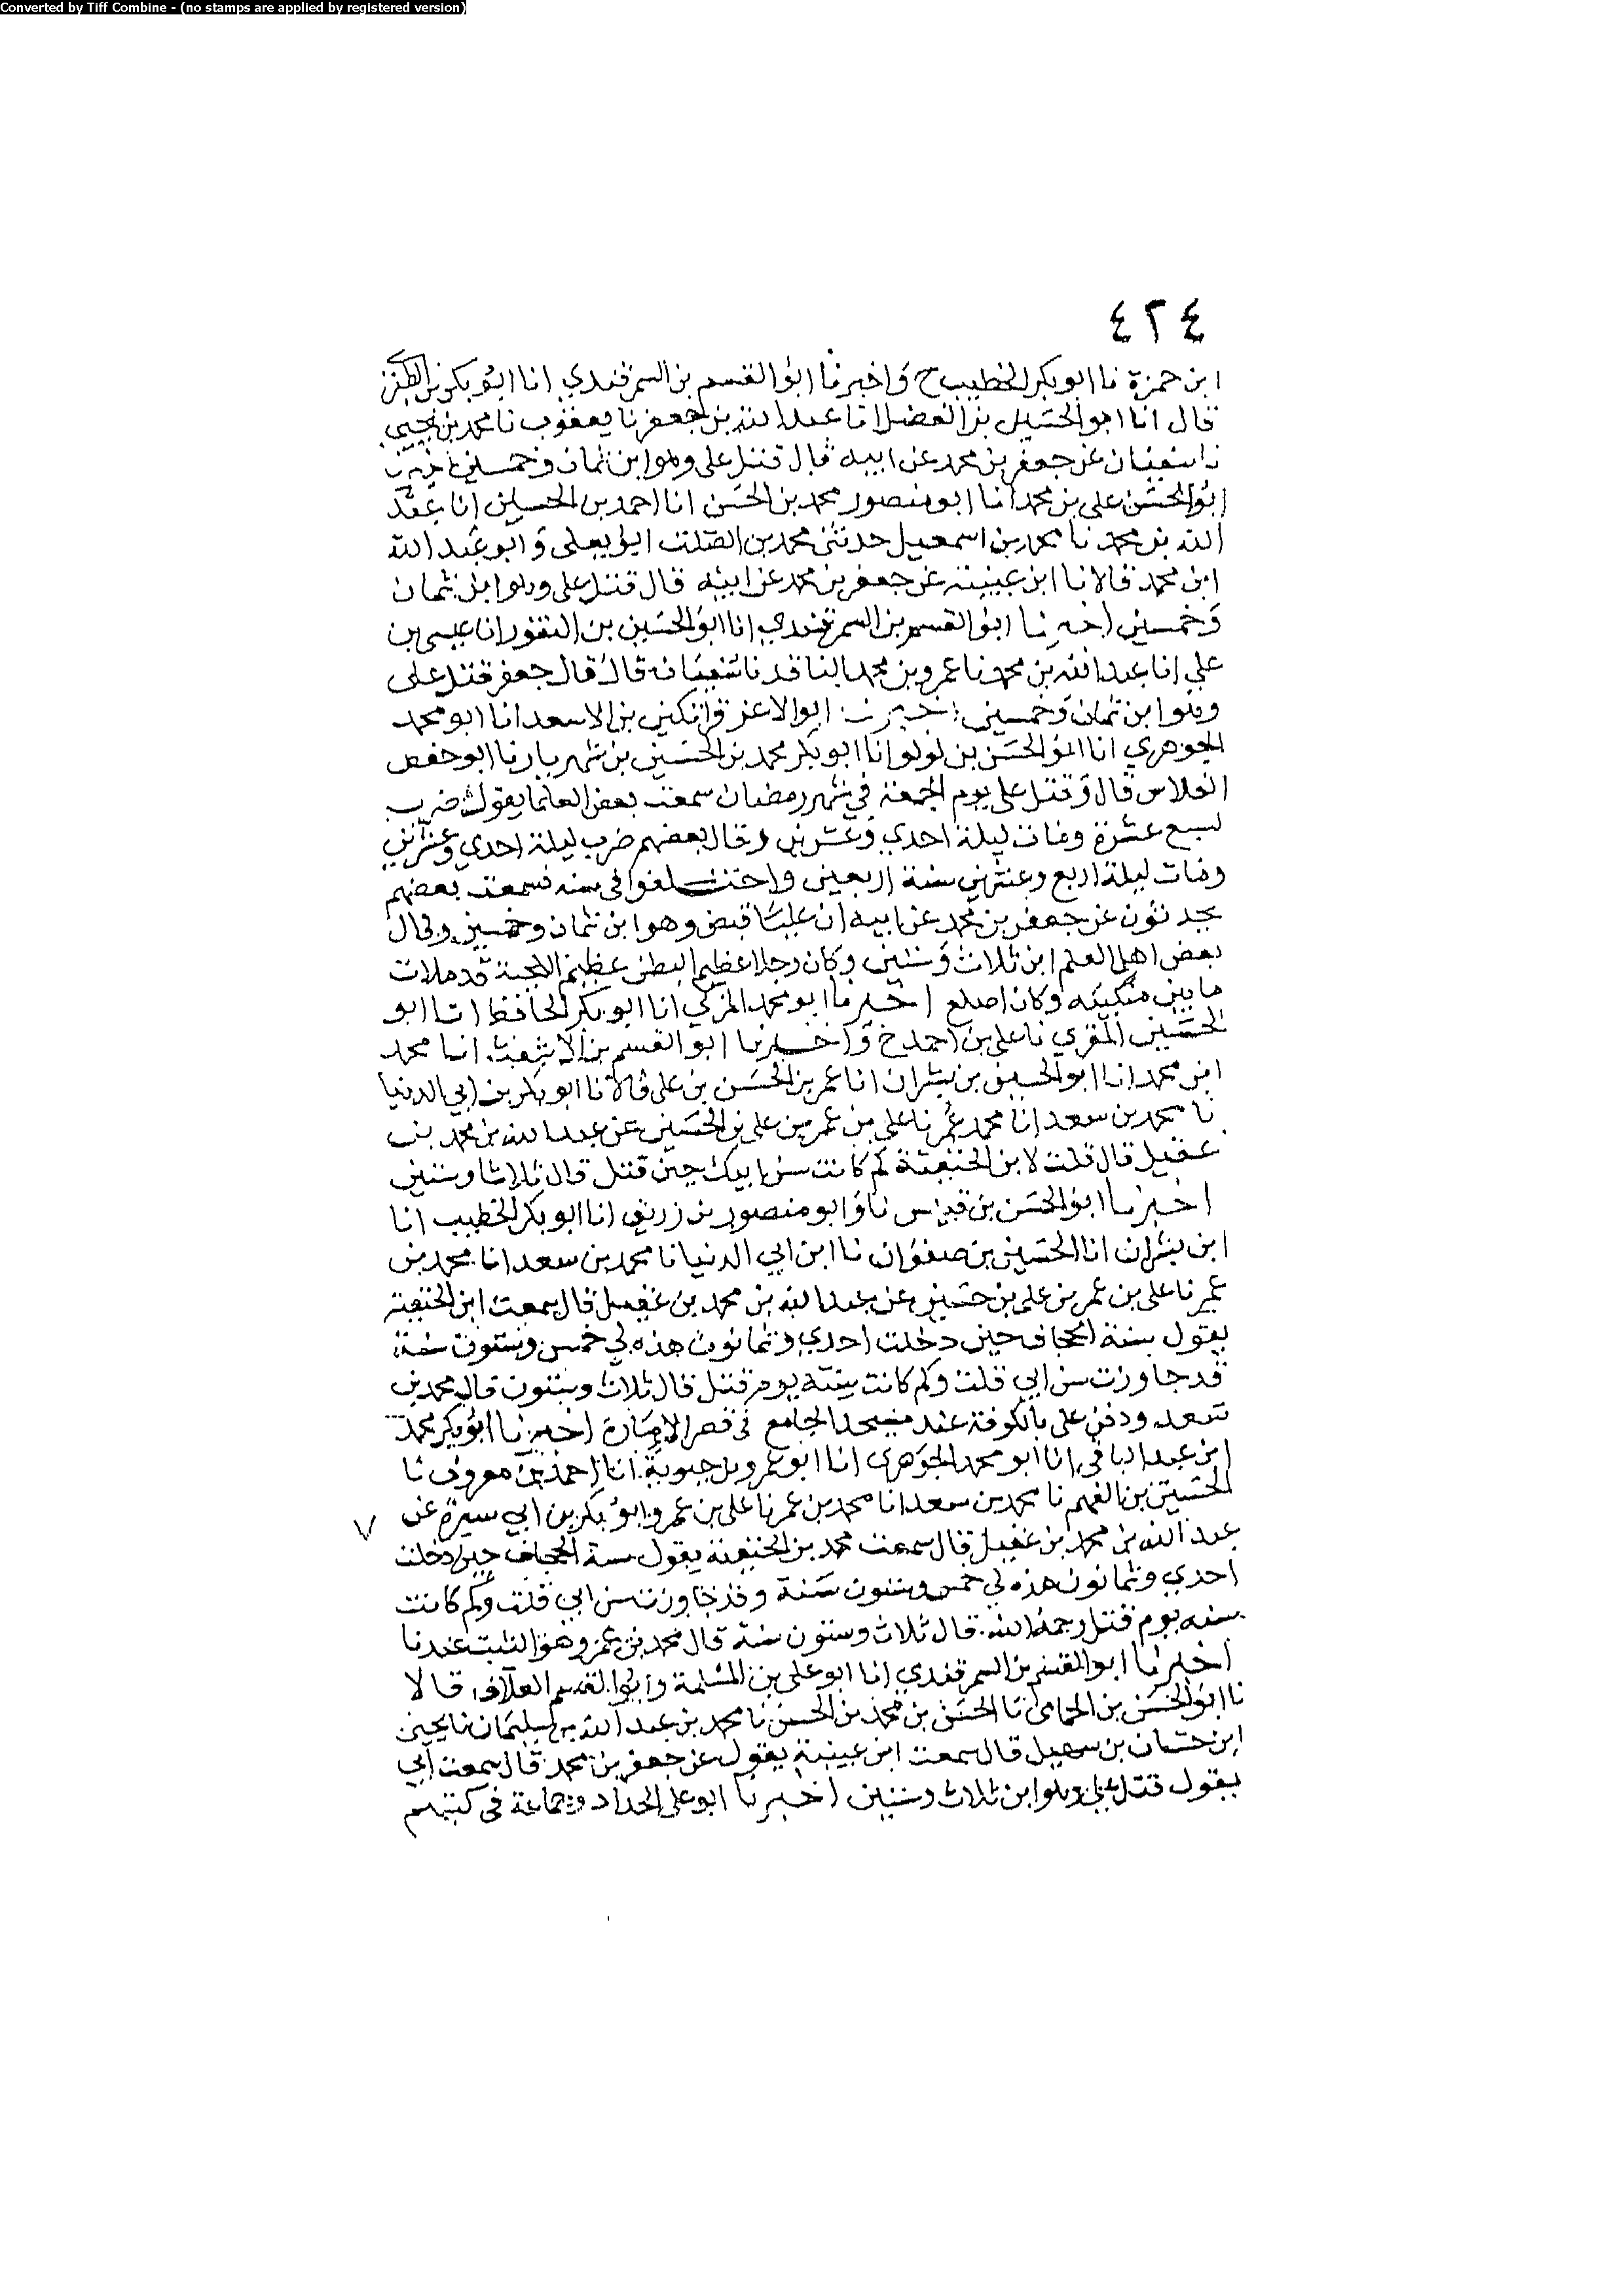 Converted by Tiff Combine - (no stamps are applied by registered version)
٤٢٤
ابن حمزة نا ابو بكر الخطيب ح واخبرنا ابو القسم بن السمرقندي انا ابو بكر بن الطبري
قال انا ابو الحسين بن الفضل انا عبد الله بن جعفر نا يعقوب نا محمد بن يحيى
نا سفيان عن جعفر بن محمد عن ابيه قال قتل على وهو ابن ثمان وخمسين اخبرنا
ابو الحسن على بن محمد انا ابو منصور محمد بن الحسن انا احمد بن الحسين انا عبد
الله بن محمد نا محمد بن اسمعيل حدثنى محمد بن الصلت ابو يعلى وابو عبد الله
ابن محمد قالا نا ابن عيينة عن جعفر بن محمد عن ابيه قال قتل على وهو ابن ثمان
وخمسين اخبرنا ابو القسم بن السمرقندي انا ابو الحسين بن النقور انا عيسى بن
علي انا عبد الله بن محمد نا عمرو بن محمد الناقد نا سفيان قال قال جعفر قتل على
وهو ابن ثمان وخمسين اخبرنا ابو الاعز قراتكين بن الاسعد انا ابو محمد
الجوهري انا ابو الحسن بن لولو انا ابو بكر محمد بن الحسين بن شهريار نا ابو حفص
الفلاس قال وقتل على يوم الجمعة في شهر رمضان سمعت بعض العلما يقول ضرب
لسبع عشرة ومات ليلة احدي وعشرين وقال بعضهم ضرب ليلة احدي وعشرين
ومات ليلة اربع وعشرين سنة اربعين واختلفوا فى سنه فسمعت بعضهم
يحدثون عن جعفر بن محمد عن ابيه ان عليا قبض وهو ابن ثمان وخمسين وقال
بعض اهل العلم ابن ثلاث وستين وكان رجلا عظيم البطن عظيم اللحية قد ملات
ما بين منكبيه وكان اصلع اخبرنا ابو محمد المزكي انا ابو بكر الحافظ انا ابو
الحسين المقري نا على بن احمد ح واخبرنا ابو القسم بن الاشعث انا محمد
ابن محمد انا ابو الحسين بن بشران انا عمر بن الحسن بن على قالا نا ابو بكر بن ابي الدنيا
نا محمد بن سعد انا محمد عمر نا على بن عمر بن على بن الحسين عن عبد الله بن محمد بن
عقيل قال قلت لابن الحنفية كم كانت سن ابيك حين قتل قال ثلاثا وستين
اخبرنا ابو الحسن بن قبيس نا وابو منصور بن زريق انا ابو بكر الخطيب انا
ابن بشران انا الحسين بن صفوان نا ابن ابي الدنيا نا محمد بن سعد انا محمد بن
عمر نا على بن عمر بن على بن حسين عن عبد الله بن محمد بن عقيل قال سمعت ابن الحنفية
يقول سنة الجحاف حين دخلت احدي وثمانون هذه لي خمس وستون سنة
قد جاوزت سن ابي قلت وكم كانت سنه يوم قتل قال ثلاث وستون قال محمد بن
سعد ودفن على بالكوفة عند مسجد الجامع في قصر الامارة اخبرنا ابو بكر محمد
ابن عبد الباقي انا ابو محمد الجوهرى انا ابو عمرو بن حيوية انا احمد بن معروف نا
الحسين بن الفهم نا محمد بن سعد انا محمد بن عمر نا على بن عمر وابو بكر بن ابي سبرة عن
عبد الله بن محمد بن عقيل قال سمعت محمد بن الحنفية يقول سنة الجحاف حين دخلت
احدي وثمانون هذه لي خمس وستون سنة وقد جاوزت سن ابي قلت وكم كانت
سنه يوم قتل رحمه الله قال ثلاث وستون سنة قال محمد بن عمر وهو الثبت عندنا
اخبرنا ابو القسم بن السمرقندي انا ابو على بن المسلمة وابو القسم العلاف قالا
نا ابو الحسن بن الحمامى نا الحسن بن محمد بن الحسن نا محمد بن عبد الله بن سليمان نا يحيى
ابن حسان بن سهيل قال سمعت ابن عيينة يقول عن جعفر بن محمد قال سمعت ابي
يقول قتل على وهو ابن ثلاث وستين اخبرنا ابو على الحداد وجماعة فى كتبهم